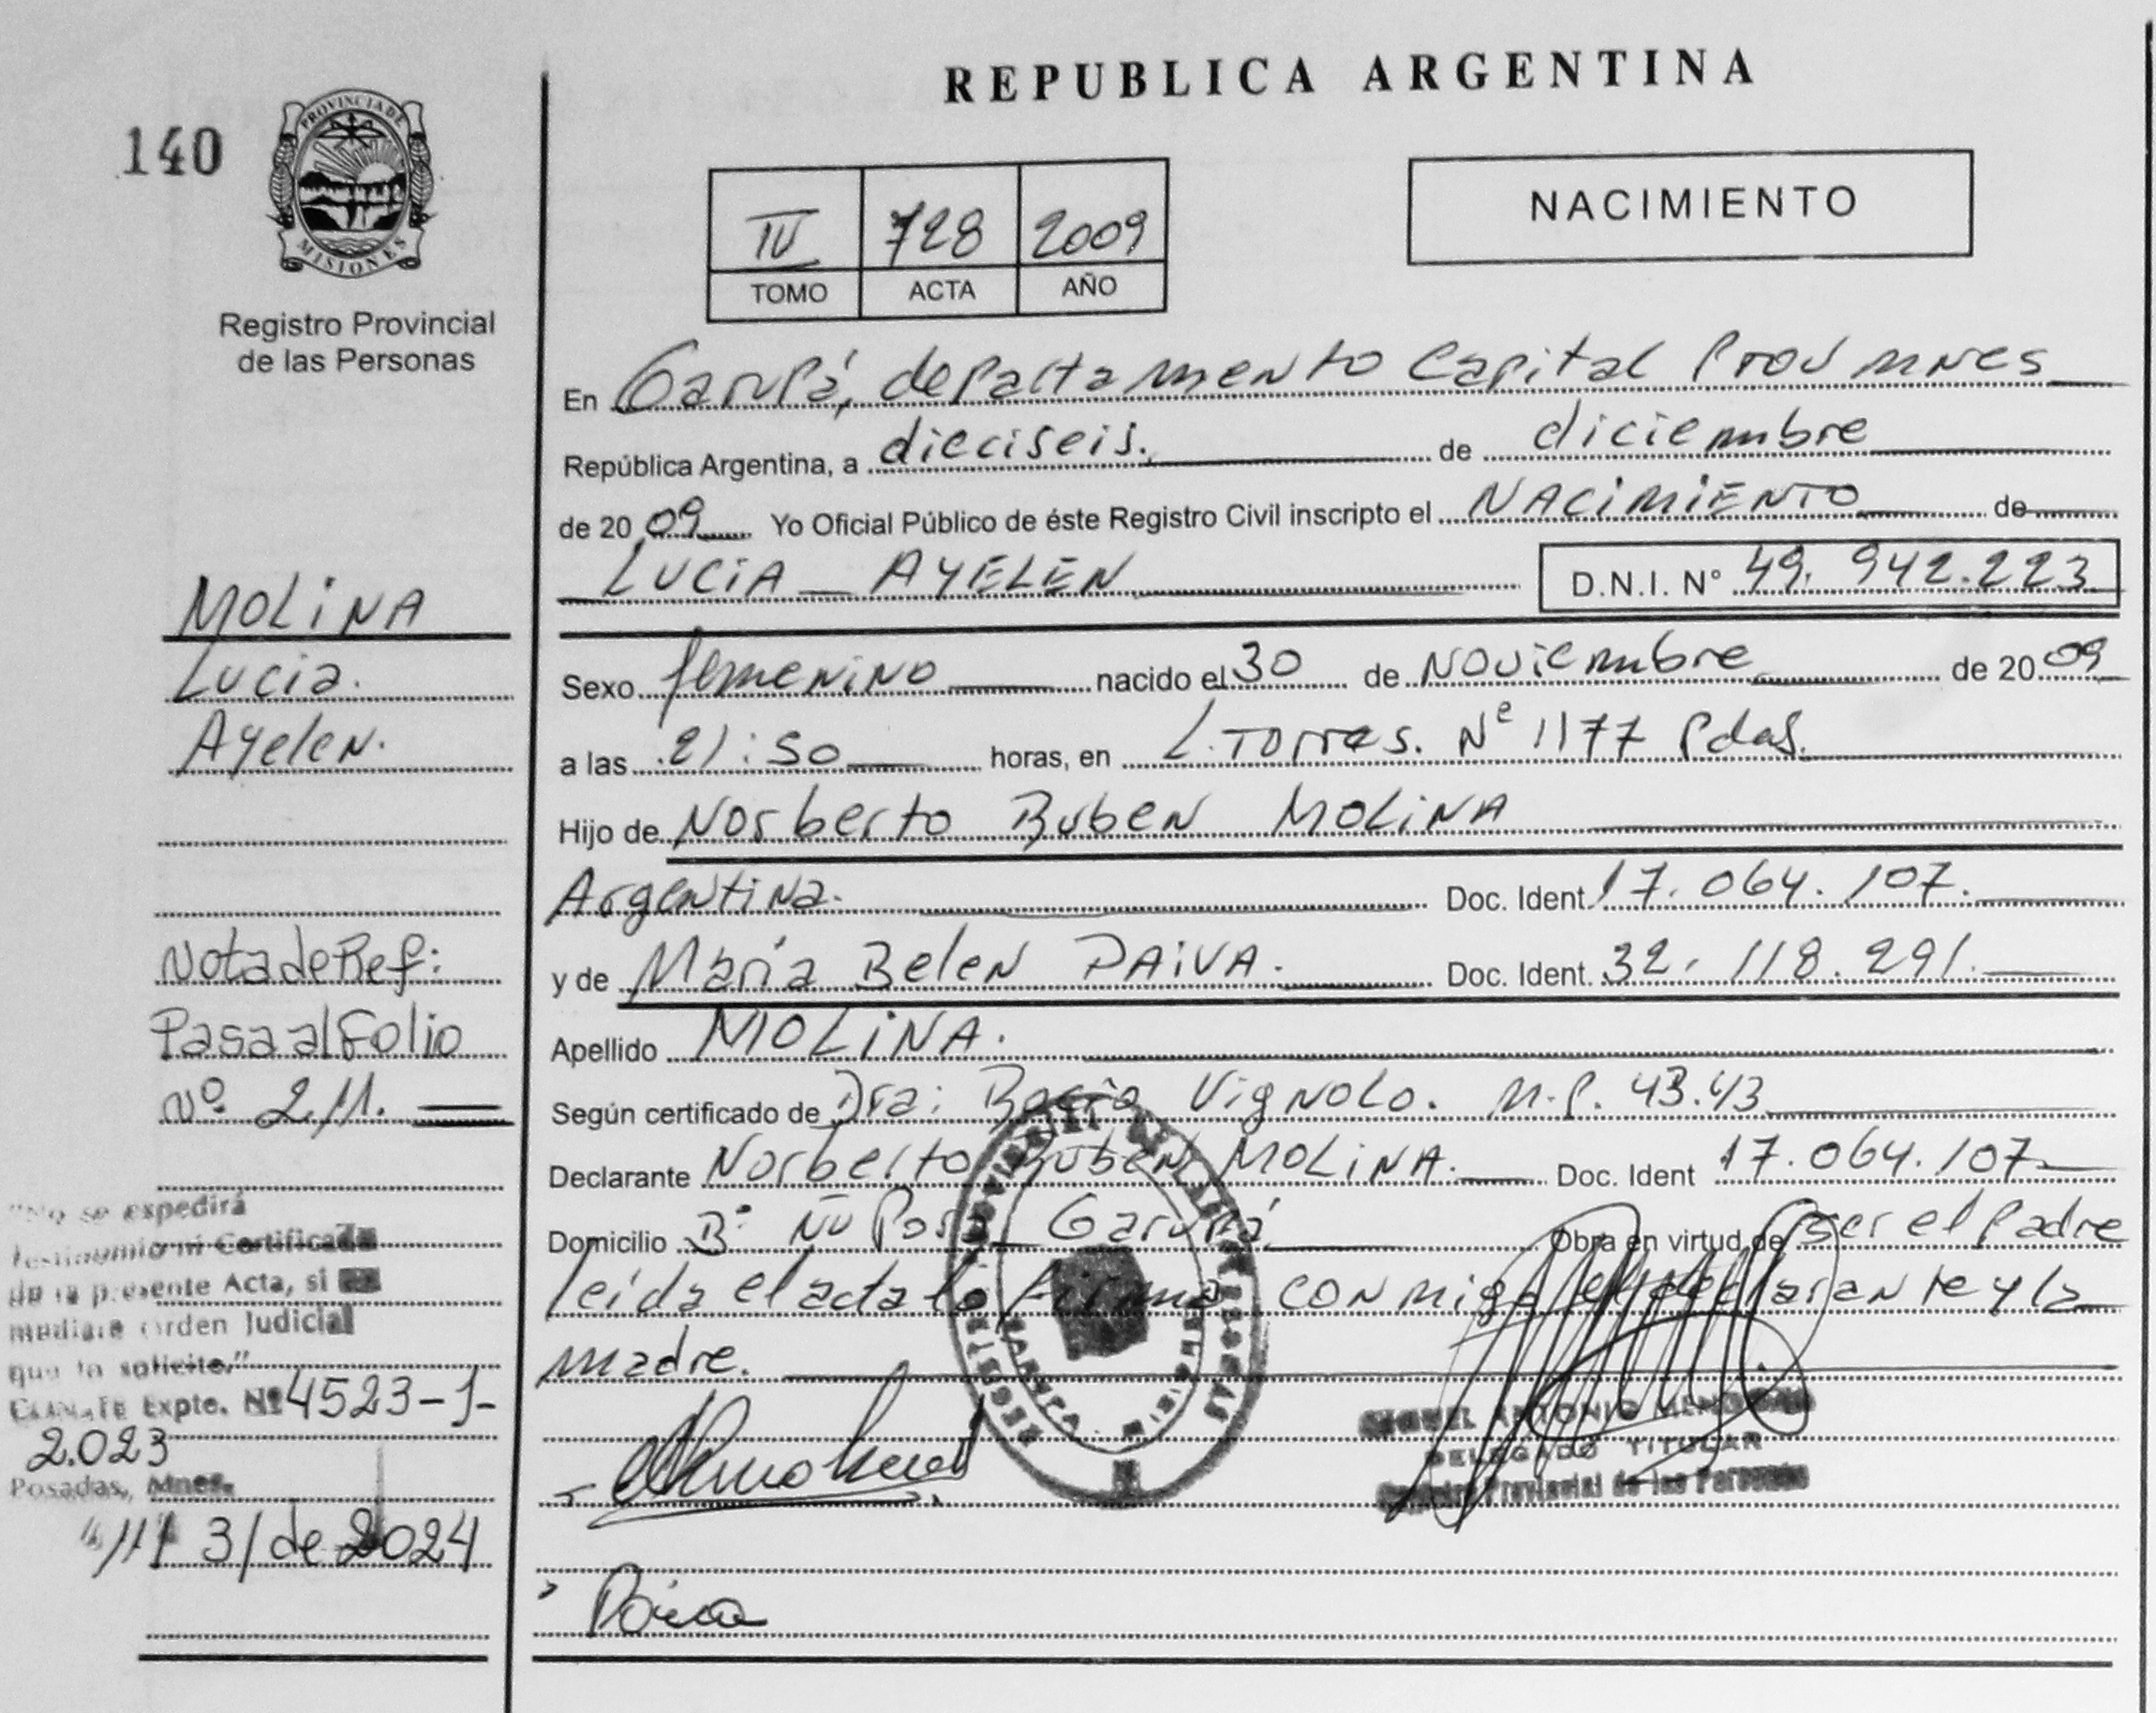 REPUBLICA ARGENTINA
140
PROVINCIA DE
MISIONES
Registro Provincial
de las Personas
IV 728 2009
TOMO ACTA AÑO
NACIMIENTO
En Garupá, departamento Capital Prov Mnes
República Argentina, a dieciseis. de diciembre
de 20 09 Yo Oficial Público de éste Registro Civil inscripto el NACIMIENTO de
LUCIA AYELEN D.N.I. N° 49.942.223
Sexo femenino nacido el 30 de Noviembre de 20 09
a las 21:50 horas, en L. Torres. Nº 1177 Pdas.
Hijo de Norberto Ruben MOLINA
Argentina. Doc. Ident 17.064.107.
y de María Belen PAIVA. Doc. Ident. 32.118.291.
Apellido MOLINA.
Según certificado de Dra: Rocío Vignolo. M.P. 43.43
Declarante Norberto Ruben MOLINA. Doc. Ident 17.064.107
Domicilio B° Ñu Pora Garupá Obra en virtud de ser el Padre
leida el acta la firma conmigo el declarante y la
madre.
MOLINA
Lucia.
Ayelen.
Nota de Ref:
Pasa al Folio
Nº 211.
"No se expedirá
Testimonio ni Certificado
de la presente Acta, si
mediare orden Judicial
que lo solicite."
Expte. Nº 4523-J-
2.023
Posadas, Mnes.
11/3/de 2024
ANTONIO
DELEGADO TITULAR
Registro Provincial de las Personas
Paiva